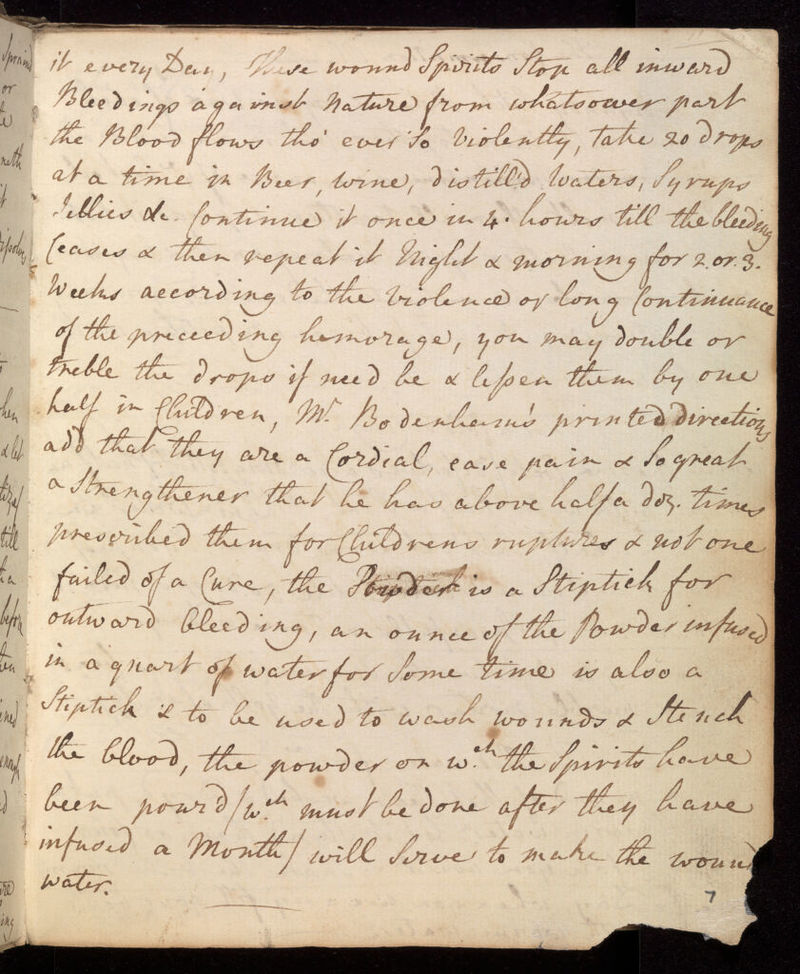 it every Day, These wound Spirits Stop all inward
Bleedings against Nature from whatsoever part
the Blood flows tho' ever So Violently, take 20 drops
at a time in Beer, wine, distill'd Waters, Syrups
Jellies &c. Continue it once in 4. hours till the bleeding
Ceases & then repeat it Night & morning for 2. or. 3.
Weeks according to the Violence or long Continuance
of the preceeding hemorage, you may double or
treble the drops if need be & lessen them by one
half in Children, Mr. Bodenham's printed directions
add that they are a Cordial, ease pain & So great
a Strengthener that he has above half a doz. times
prescribed them for Childrens ruptures & not one
failed of a Cure, the Powder is a Stiptick for
outward bleeding, an ounce of the Powder infused
in a quart of water for Some time is also a
Stiptick & to be used to wash wounds & Stench
the blood, the powder on w.ch the Spirits have
been pour'd /w.ch must be done after they have
infused a Month/ will Serve to make the wound
water.
7